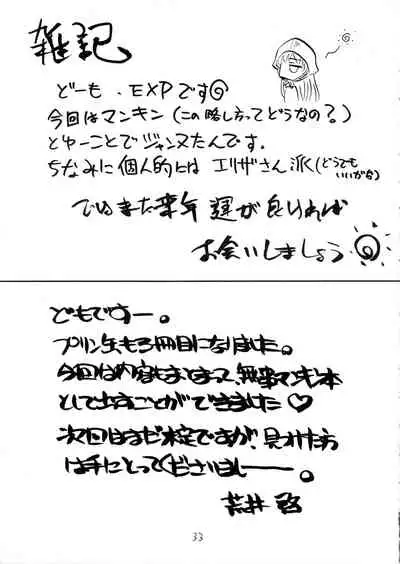 雑記
どーも、EXPです
今回はマンキン(この略し方ってどうなの?)
とゆーことでジャンヌたんです.
ちなみに個人的には エリザさん派(どうでもいいが(笑))
でわまた来年 運が良ければ
お会いしましょう
どもですー。
プリン缶も3冊目になりました。
今回は内容もまとまって、無事マンキン本
として出すことができました♡
次回はまだ未定ですが、見かけた方
は手にとってくださいましー。
荒井 啓
33